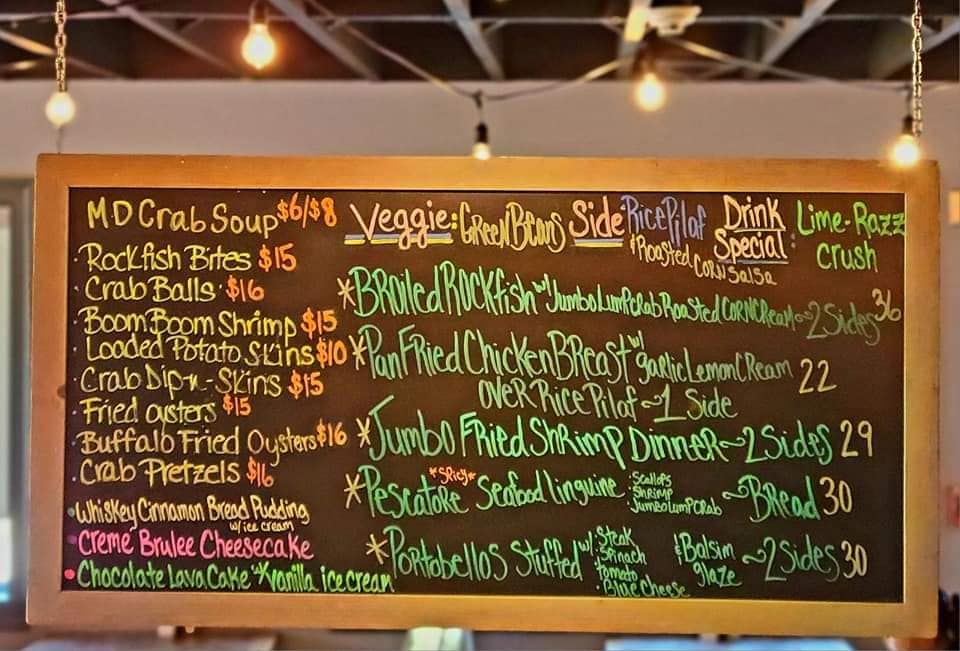 MD Crab Soup $6/$8
· Rockfish Bites $15
· Crab Balls $16
· Boom Boom Shrimp $15
· Loaded Potato Skins $10
· Crab Dip-n-Skins $15
· Fried oysters $15
· Buffalo Fried Oysters $16
· Crab Pretzels $16
• Whiskey Cinnamon Bread Pudding
w/ ice cream
• Creme Brulee Cheesecake
• Chocolate Lava Cake *vanilla ice cream
Veggie: Green Beans Side: Rice Pilaf
& Roasted Corn Salsa
Drink Special: Lime-Razz Crush
*Broiled Rockfish w/ Jumbo Lump Crab Roasted Corn Cream ~ 2 Sides 36
*Pan Fried Chicken Breast w/ garlic Lemon Cream 22
over Rice Pilaf ~ 1 Side
*Jumbo Fried Shrimp Dinner ~ 2 Sides 29
*Spicy*
*Pescatore Seafood Linguine ~ Bread 30
· Scallops
· Shrimp
· Jumbo Lump Crab
*Portobellos Stuffed w/ & Balsim glaze ~ 2 Sides 30
· Steak
· Spinach
· Tomato
· Blue Cheese